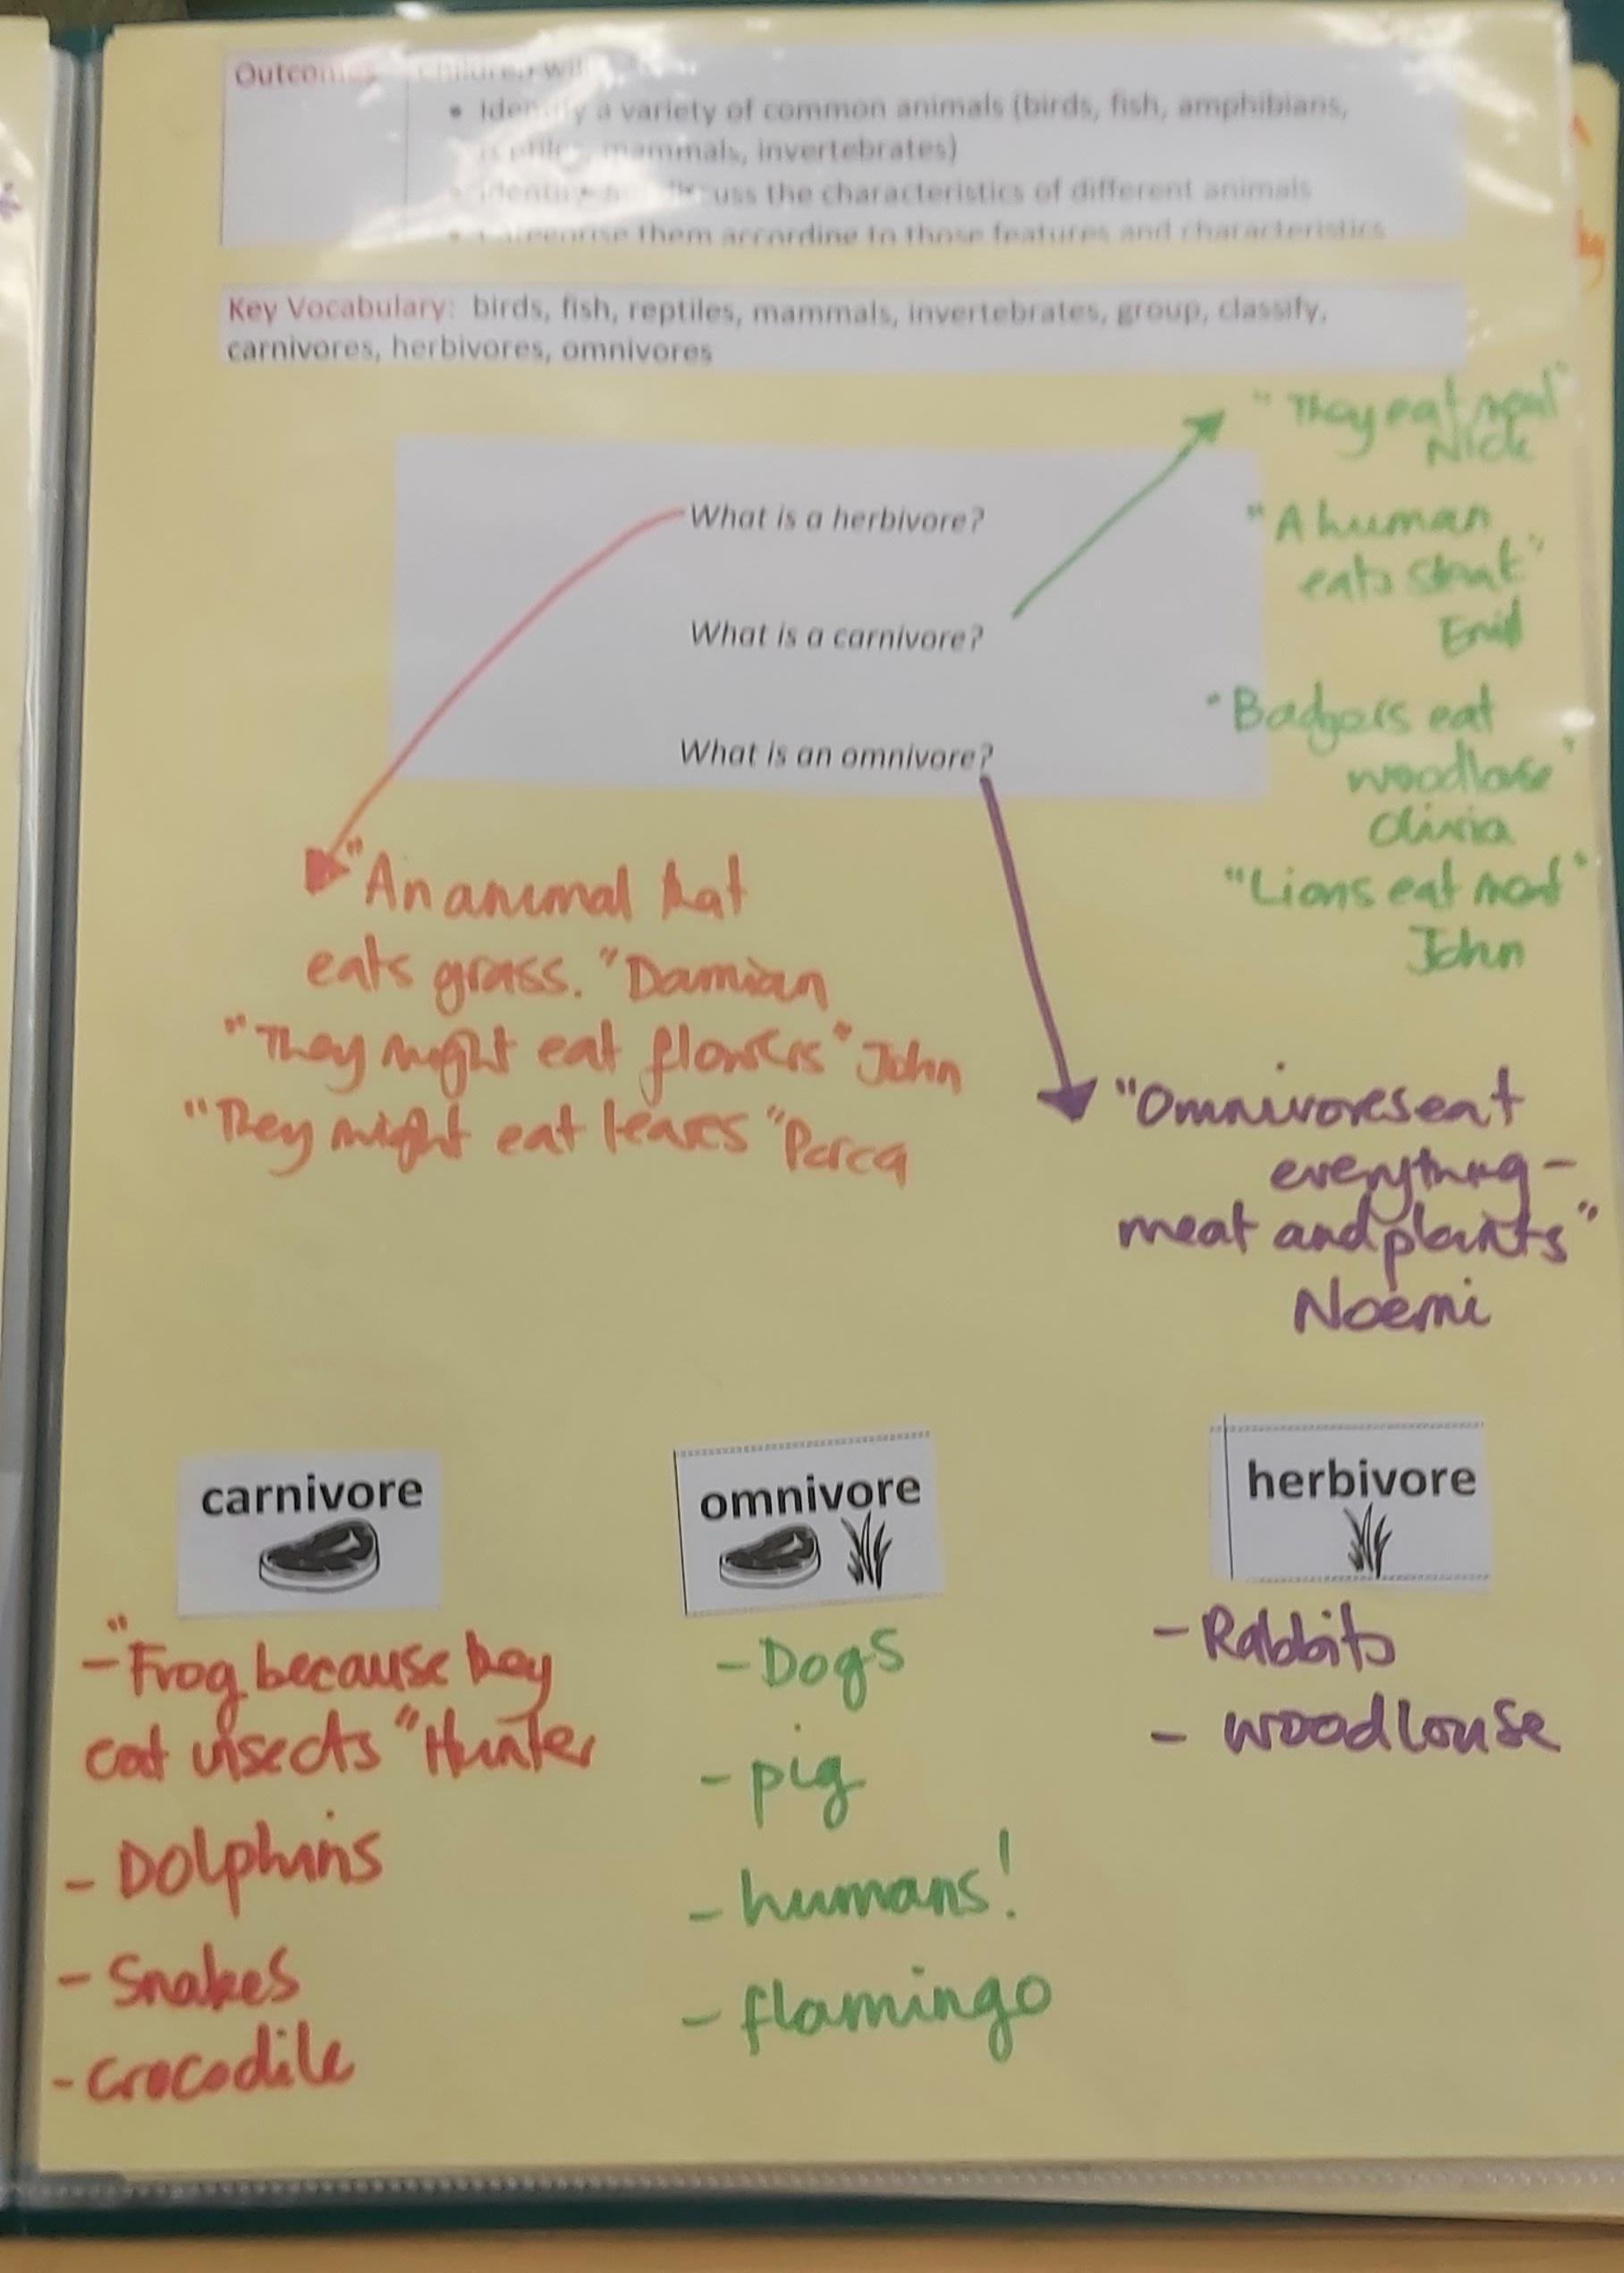 Outcomes Children will
• Identify a variety of common animals (birds, fish, amphibians,
reptiles, mammals, invertebrates)
• Identify and discuss the characteristics of different animals
• Categorise them according to those features and characteristics
Key Vocabulary: birds, fish, reptiles, mammals, invertebrates, group, classify,
carnivores, herbivores, omnivores
What is a herbivore?
What is a carnivore?
What is an omnivore?
"They eat meat"
Nick
"A human
eats"
Enid
"Badgers eat
woodlouse"
Olivia
"Lions eat meat"
John
"An animal that
eats grass." Damian
"They might eat flowers" John
"They might eat leaves"
"Omnivores eat
everything –
meat and plants"
Noemi
carnivore
- "Frog because they
eat insects" Hunter
- Dolphins
- Snakes
- crocodile
omnivore
- Dogs
- pig
- humans!
- flamingo
herbivore
- Rabbits
- woodlouse